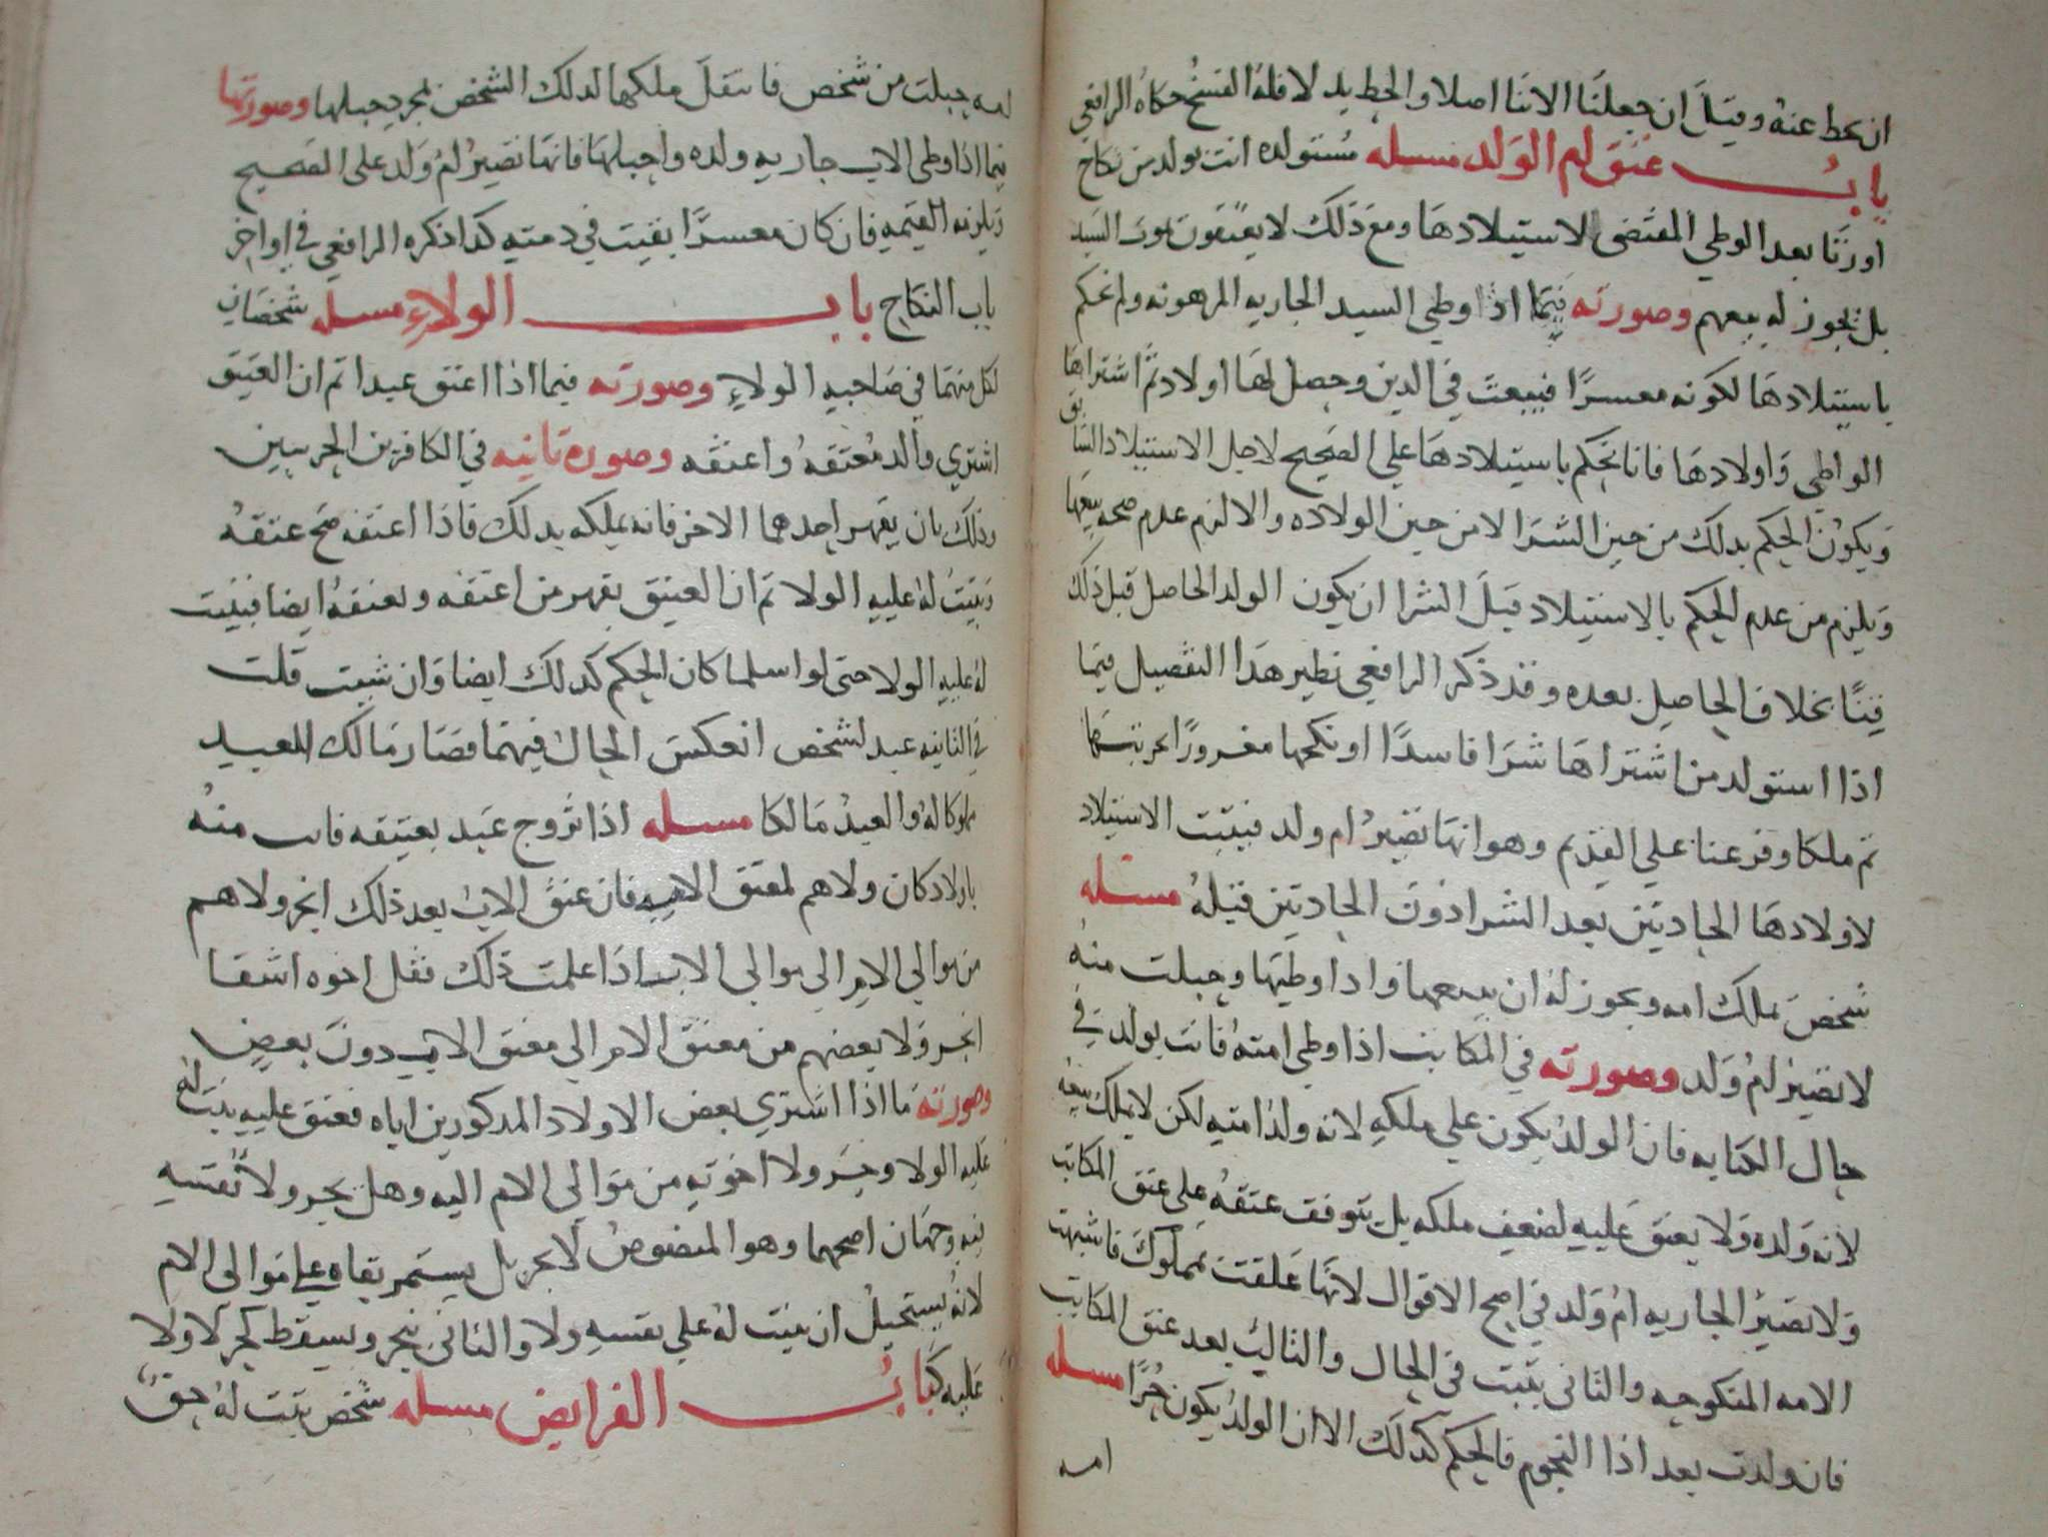 ان يحط عنه وقيل ان جعلنا الاتنا اصلا والحط بدلا فله الفسخ حكاه الرافعي
باب عتق ام الولد مسله مستولده اتت بولد من نكاح
او زنا بعد الوطي المقتضى لاستيلادها ومع ذلك لا يعتقون بموت السيد
بل يجوز له بيعهم وصورته فيما اذا وطي السيد الجاريه المرهونه ولم نحكم
باستيلادها لكونه معسرا فبيعت في الدين وحصل لها اولاد ثم اشتراها
الواطي واولادها فانا نحكم باستيلادها على الصحيح لاجل الاستيلاد السابق
ويكون الحكم بذلك من حين الشرا لا من حين الولاده والا لزم عدم صحه بيعها
ويلزم من عدم الحكم بالاستيلاد قبل الشرا ان يكون الولد الحاصل قبل ذلك
قنا بخلاف الحاصل بعده وقد ذكر الرافعي نظير هذا التفصيل فيما
اذا استولد من اشتراها شرا فاسدا او نكحها مغرورا بحريتها
ثم ملكا وفرعنا علي القديم وهو انها تصير ام ولد فيثبت الاستيلاد
لاولادها الحادثين بعد الشرا دون الحادثين قبله مسئله
شخص يملك امه ويجوز له ان يبيعها واذا وطيها وحبلت منه
لا تصير ام ولد وصورته في المكاتب اذا وطي امته فاتت بولد في
حال الكتابه فان الولد يكون علي ملكه لانه ولد امته لكن لا يملك بيعه
لانه ولده ولا يعتق عليه لضعف ملكه بل يتوقف عتقه على عتق المكاتب
ولا تصير الجاريه ام ولد في اصح الاقوال لانها علقت بمملوك فاشبهت
الامه المنكوحه والثاني يثبت في الحال والثالث بعد عتق المكاتب
فان ولدت بعد اذا النجوم فالحكم كذلك الا ان الولد يكون حرا مسله
امه
امه حبلت من شخص فانتقل ملكها لذلك الشخص بمجرد حبلها وصورتها
فيما اذا وطي الاب جاريه ولده واحبلها فانها تصير ام ولد على الصحيح
ويلزمه القيمه فان كان معسرا بقيت في ذمته كذا ذكره الرافعي في اواخر
باب النكاح باب الولاء مسله شخصان
لكل منهما في صاحبه الولاء وصورته فيما اذا اعتق عبدا ثم ان العتيق
اشتري والد معتقه واعتقه وصوره ثانيه في الكافرين الحربيين
وذلك بان يقهر احدهما الاخر فانه يملكه بذلك فاذا اعتقه صح عتقه
ويثبت له عليه الولا ثم ان العتيق يقهر من اعتقه ويعتقه ايضا فيثبت
له عليه الولا حتى لو اسلما كان الحكم كذلك ايضا وان شيت قلت
في الثانيه عبد لشخص انعكس الحال فيهما فصار مالك العبد
مملوكا له والعبد مالكا مسله اذا تزوج عبد بعتيقه فاتت منه
باولاد كان ولاهم لمعتق الام فان عتق الاب بعد ذلك انجر ولاهم
من موالي الام الى موالي الاب اذا علمت ذلك فقل اخوه اشقا
انجر ولا بعضهم من معتق الام الي معتق الاب دون بعض
وصورته ما اذا اشتري بعض الاولاد المذكورين اياه فعتق عليه يثبت له
عليه الولا وجر ولا اخوته من موالي الام اليه وهل يجر ولا نفسه
فيه وجهان اصحهما وهو المنصوص لا يجر بل يستمر بقاه علي موالي الام
لانه يستحيل ان يثبت له علي نفسه ولا والثاني ينجر ويسقط كحر لا ولا
عليه كتاب الفرايض مسله شخص ثبت له حق